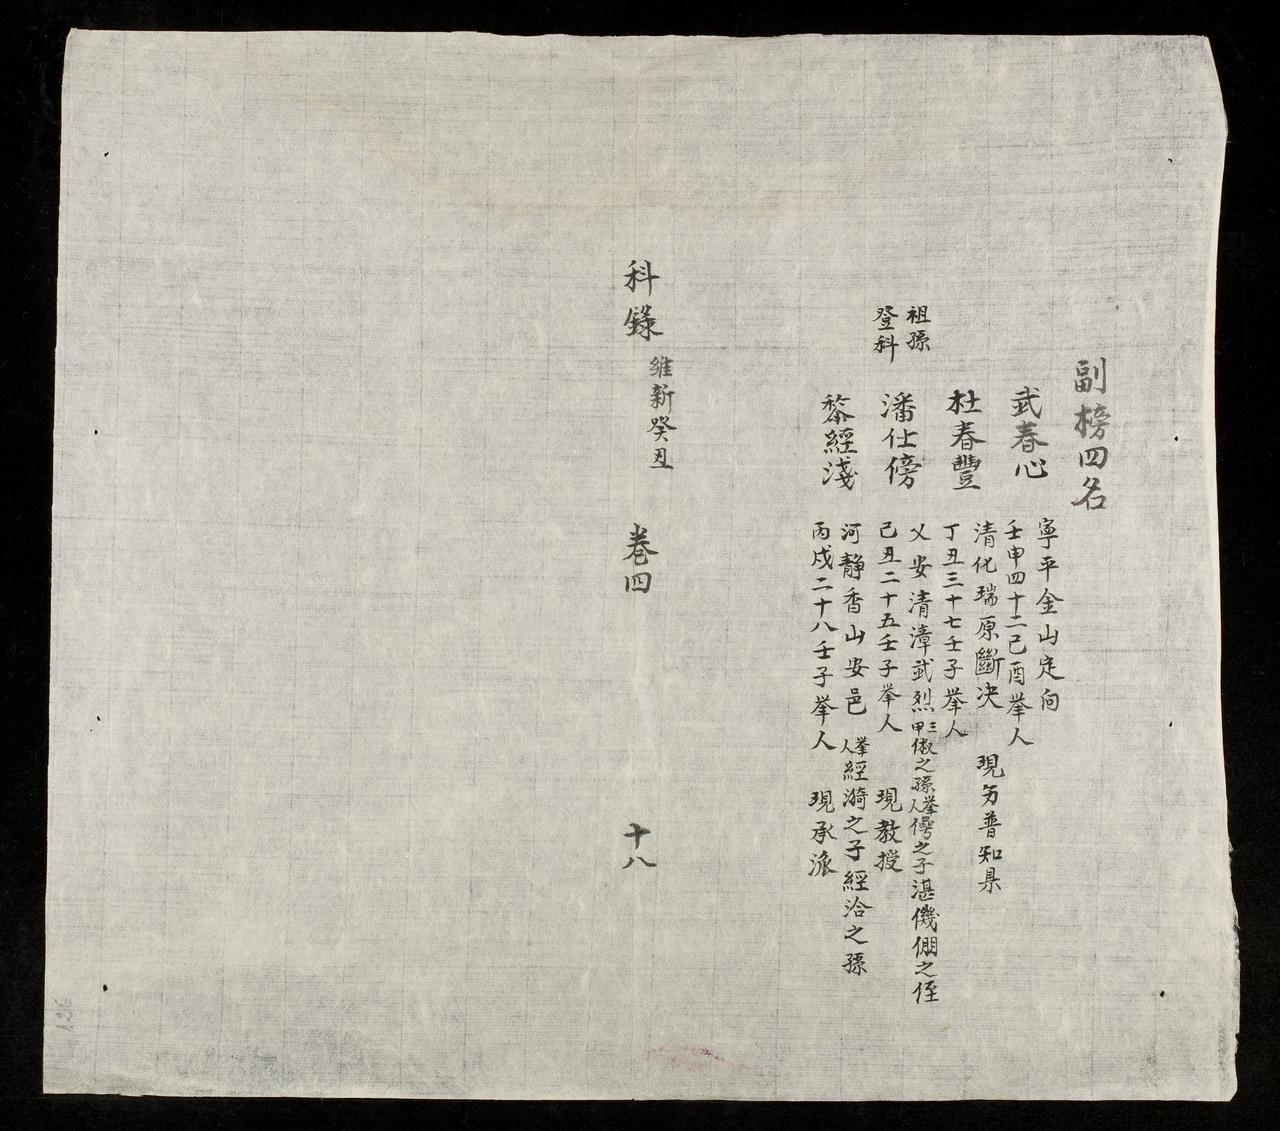 副榜四名
武春心
寧平金山定向
壬申四十二己酉举人
杜春豐
清化瑞原斷决 現 普知県
丁丑三十七壬子举人
祖孫
登科
潘仕傍
乂安清漳武烈三甲俶之孫举人 之子湛僟倗之侄
己丑二十五壬子举人 現教授
黎經淺
河靜香山安邑举人經漪之子經洽之孫
丙戌二十八壬子举人 現承派
科錄 維新癸丑 卷四 十八
126